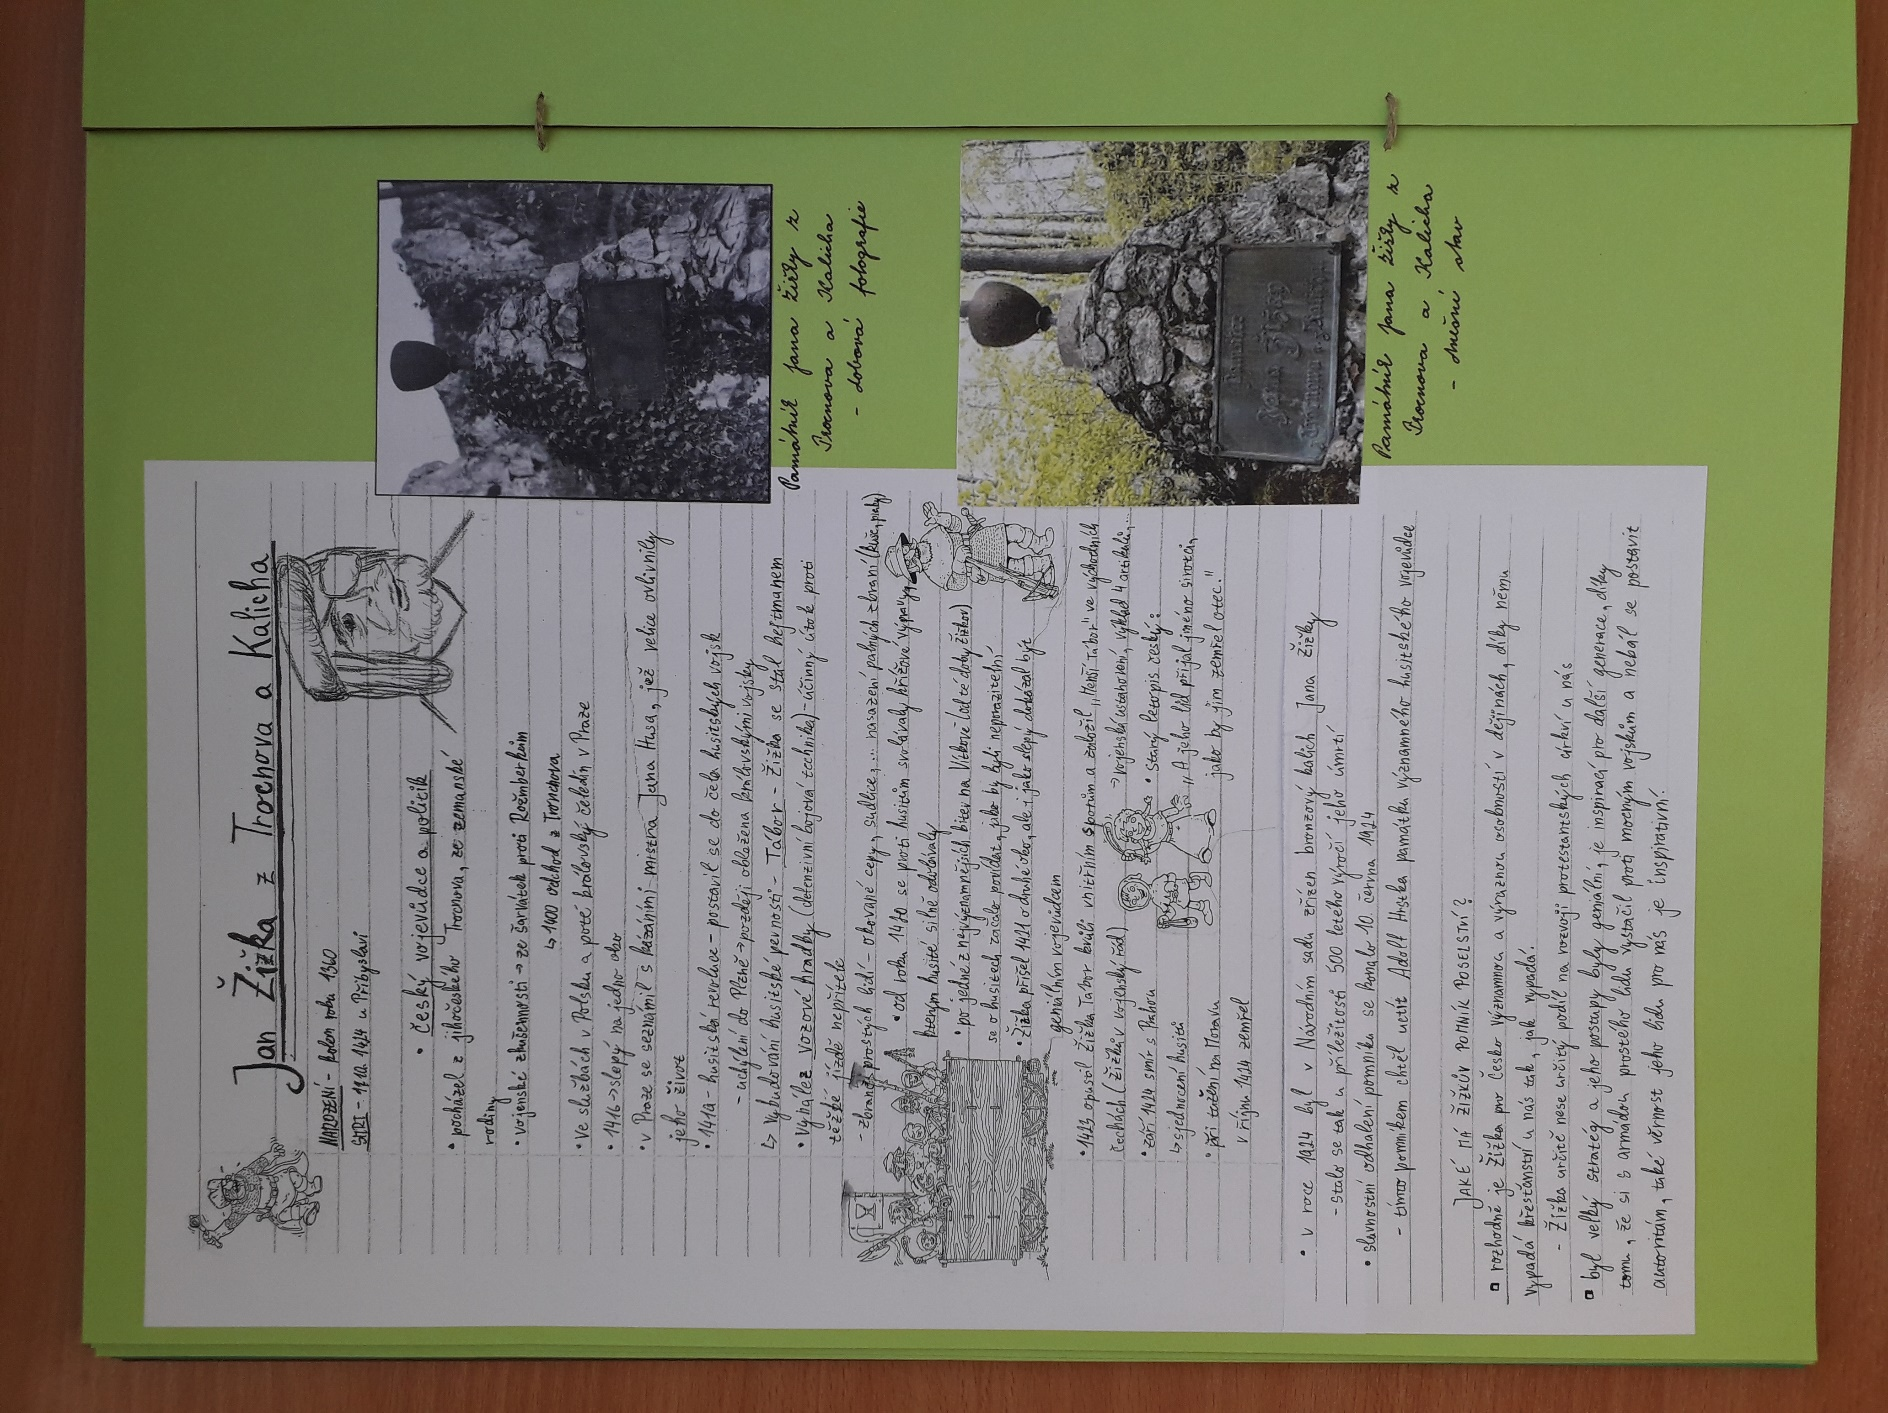 Jan Žižka z Trocnova a Kalicha
NAROZENÍ - kolem roku 1360
ÚMRTÍ - 11.10. 1424 u Přibyslavi
• český vojevůdce a politik
• pocházel z jihočeského Trocnova, ze zemanské
rodiny
• vojenské zkušenosti → ze šarvátek proti Rožmberkům
↳ 1400 odchod z Trocnova
• Ve službách v Polsku a poté královský čeledín v Praze
• 1416 → slepý na jedno oko
• v Praze se seznámil s kázáním mistra Jana Husa, jež velice ovlivnily
jeho život
• 1419 - husitská revoluce - postavil se do čela husitských vojsk
- uchýlení do Plzně → později obležena královskými vojsky
↳ Vybudování husitské pevnosti - Tábor - Žižka se stal hejtmanem
• Vynález vozové hradby (defenzivní bojová technika) - účinný útok proti
těžké jízdě nepřítele
- zbraně prostých lidí - okované cepy, sudlice,... nasazení palných zbraní (kuše, píšaly)
• od roku 1420 se proti husitům svolávaly křížové výpravy,
kterým husité silně odolávaly
• po jedné z nejvýznamnějších bitev na Vítkově (od té doby Žižkov)
se o husitech začalo povídat, jako by byli neporazitelní
• Žižka přišel 1421 o druhé oko, ale i jako slepý dokázal být
geniálním vojevůdcem
• 1423 opustil Žižka Tábor kvůli vnitřním sporům a založil „Menší Tábor" ve východních
čechách (Žižkův vojenský řád) → vojenská ustanovení, výklad 4 artikulů,...
• září 1424 smír s Prahou
↳ sjednocení husitů
• při tažení na Moravu
v říjnu 1424 zemřel
• Starý letopis český:
„A jeho lid přijal jméno sirotci,
jako by jim zemřel otec."
• v roce 1924 byl v Národním sadu zřízen bronzový kalich Jana Žižky
- stalo se tak u příležitosti 500 letého výročí jeho úmrtí
• slavnostní odhalení pomníku se konalo 10. června 1924
- tímto pomníkem chtěl uctít Adolf Hrstka památku významného husitského vojevůdce
JAKÉ MÁ ŽIŽKŮV POMNÍK POSELSTVÍ?
▫ rozhodně je Žižka pro Česko významnou a výraznou osobností v dějinách, díky němu
vypadá křesťanství u nás tak, jak vypadá.
- Žižka určitě nese určitý podíl na rozvoji protestantských církví u nás
▫ byl velký stratég a jeho postupy byly geniální, je inspirací pro další generace, díky
tomu, že si s armádou prostého lidu vystačil proti mocným vojskům a nebál se postavit
autoritám, také věrnost jeho lidu pro nás je inspirativní.
Památník Jana Žižky z
Trocnova a Kalicha
- dobová fotografie
Památník
Jana Žižky
z Trocnova a Kalicha.
Památník Jana Žižky z
Trocnova a Kalicha
- dnešní stav